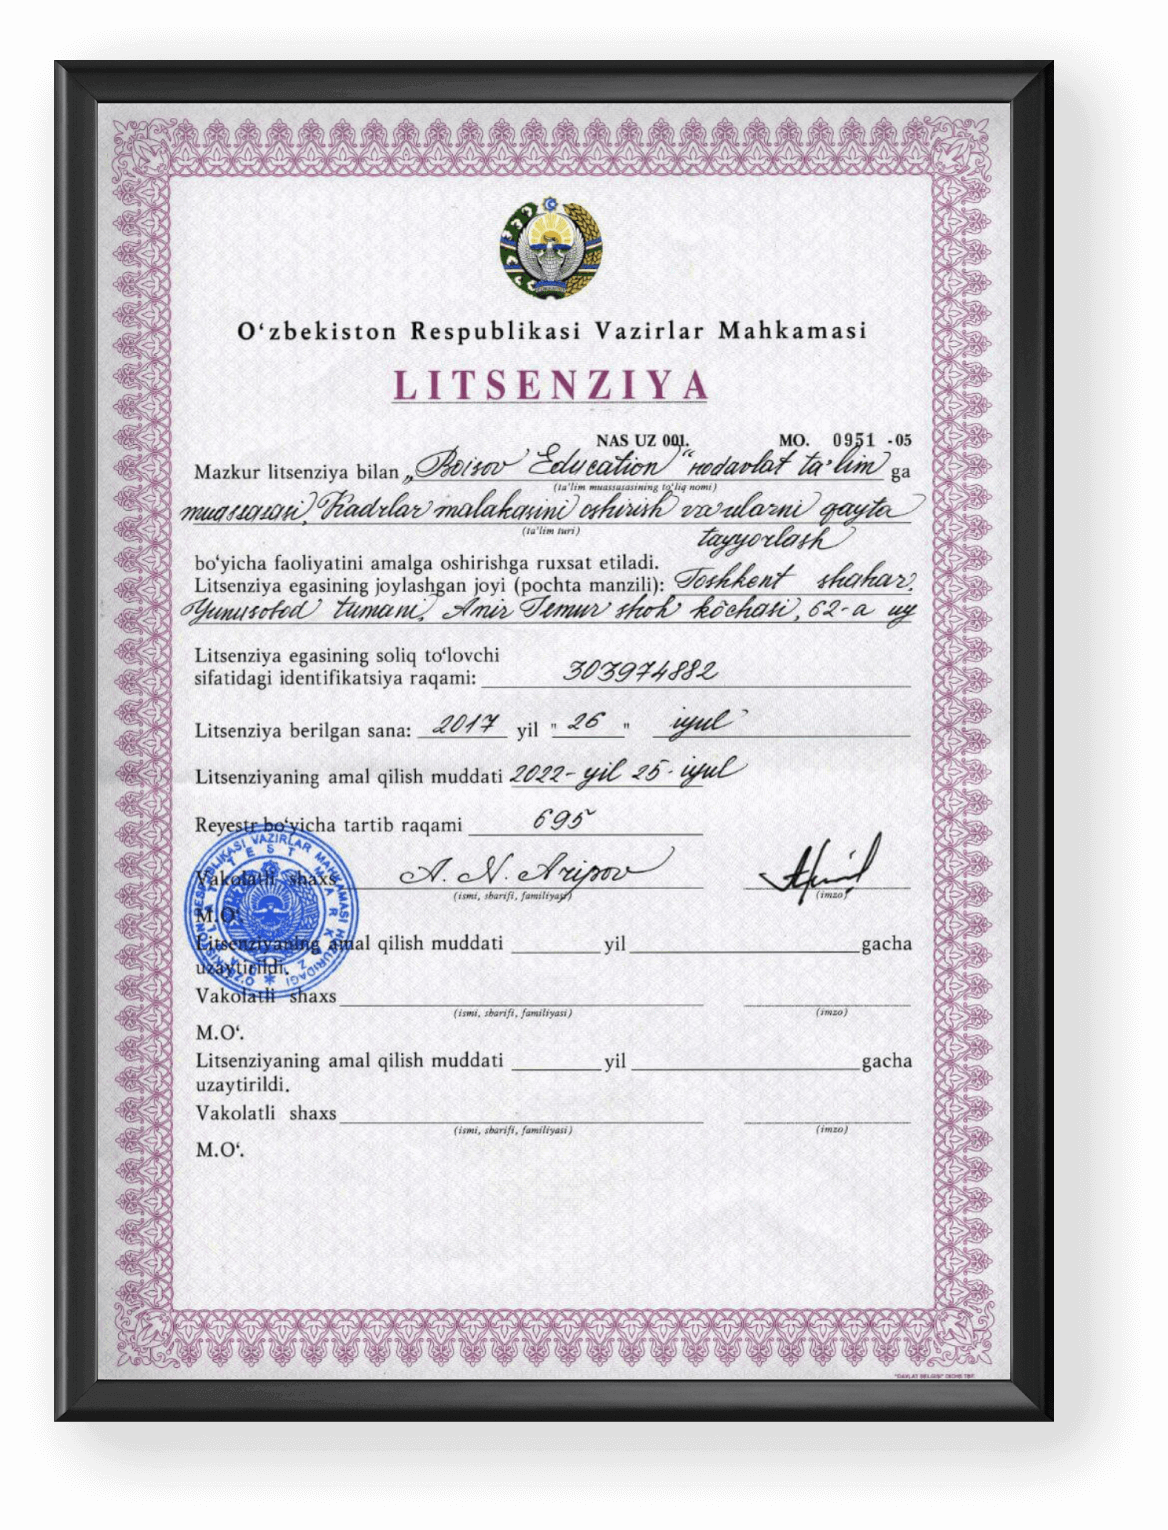 O‘zbekiston Respublikasi Vazirlar Mahkamasi
LITSENZIYA
NAS UZ 001. MO. 0951 -05
Mazkur litsenziya bilan „Boisov Education“ nodavlat ta’lim ga
(ta’lim muassasasining to‘liq nomi)
muassasasi, Kadrlar malakasini oshirish va ularni qayta
(ta’lim turi)
tayyorlash
bo‘yicha faoliyatini amalga oshirishga ruxsat etiladi.
Litsenziya egasining joylashgan joyi (pochta manzili): Toshkent shahar,
Yunusobod tumani, Amir Temur shoh ko‘chasi, 62-a uy
Litsenziya egasining soliq to‘lovchi
sifatidagi identifikatsiya raqami: 303974882
Litsenziya berilgan sana: 2017 yil "26" iyul
Litsenziyaning amal qilish muddati 2022-yil 25-iyul
Reyestr bo‘yicha tartib raqami 695
Vakolatli shaxs A. N. Aripov
(ismi, sharifi, familiyasi) (imzo)
M.O‘.
Litsenziyaning amal qilish muddati yil gacha
uzaytirildi.
Vakolatli shaxs
(ismi, sharifi, familiyasi) (imzo)
M.O‘.
Litsenziyaning amal qilish muddati yil gacha
uzaytirildi.
Vakolatli shaxs
(ismi, sharifi, familiyasi) (imzo)
M.O‘.